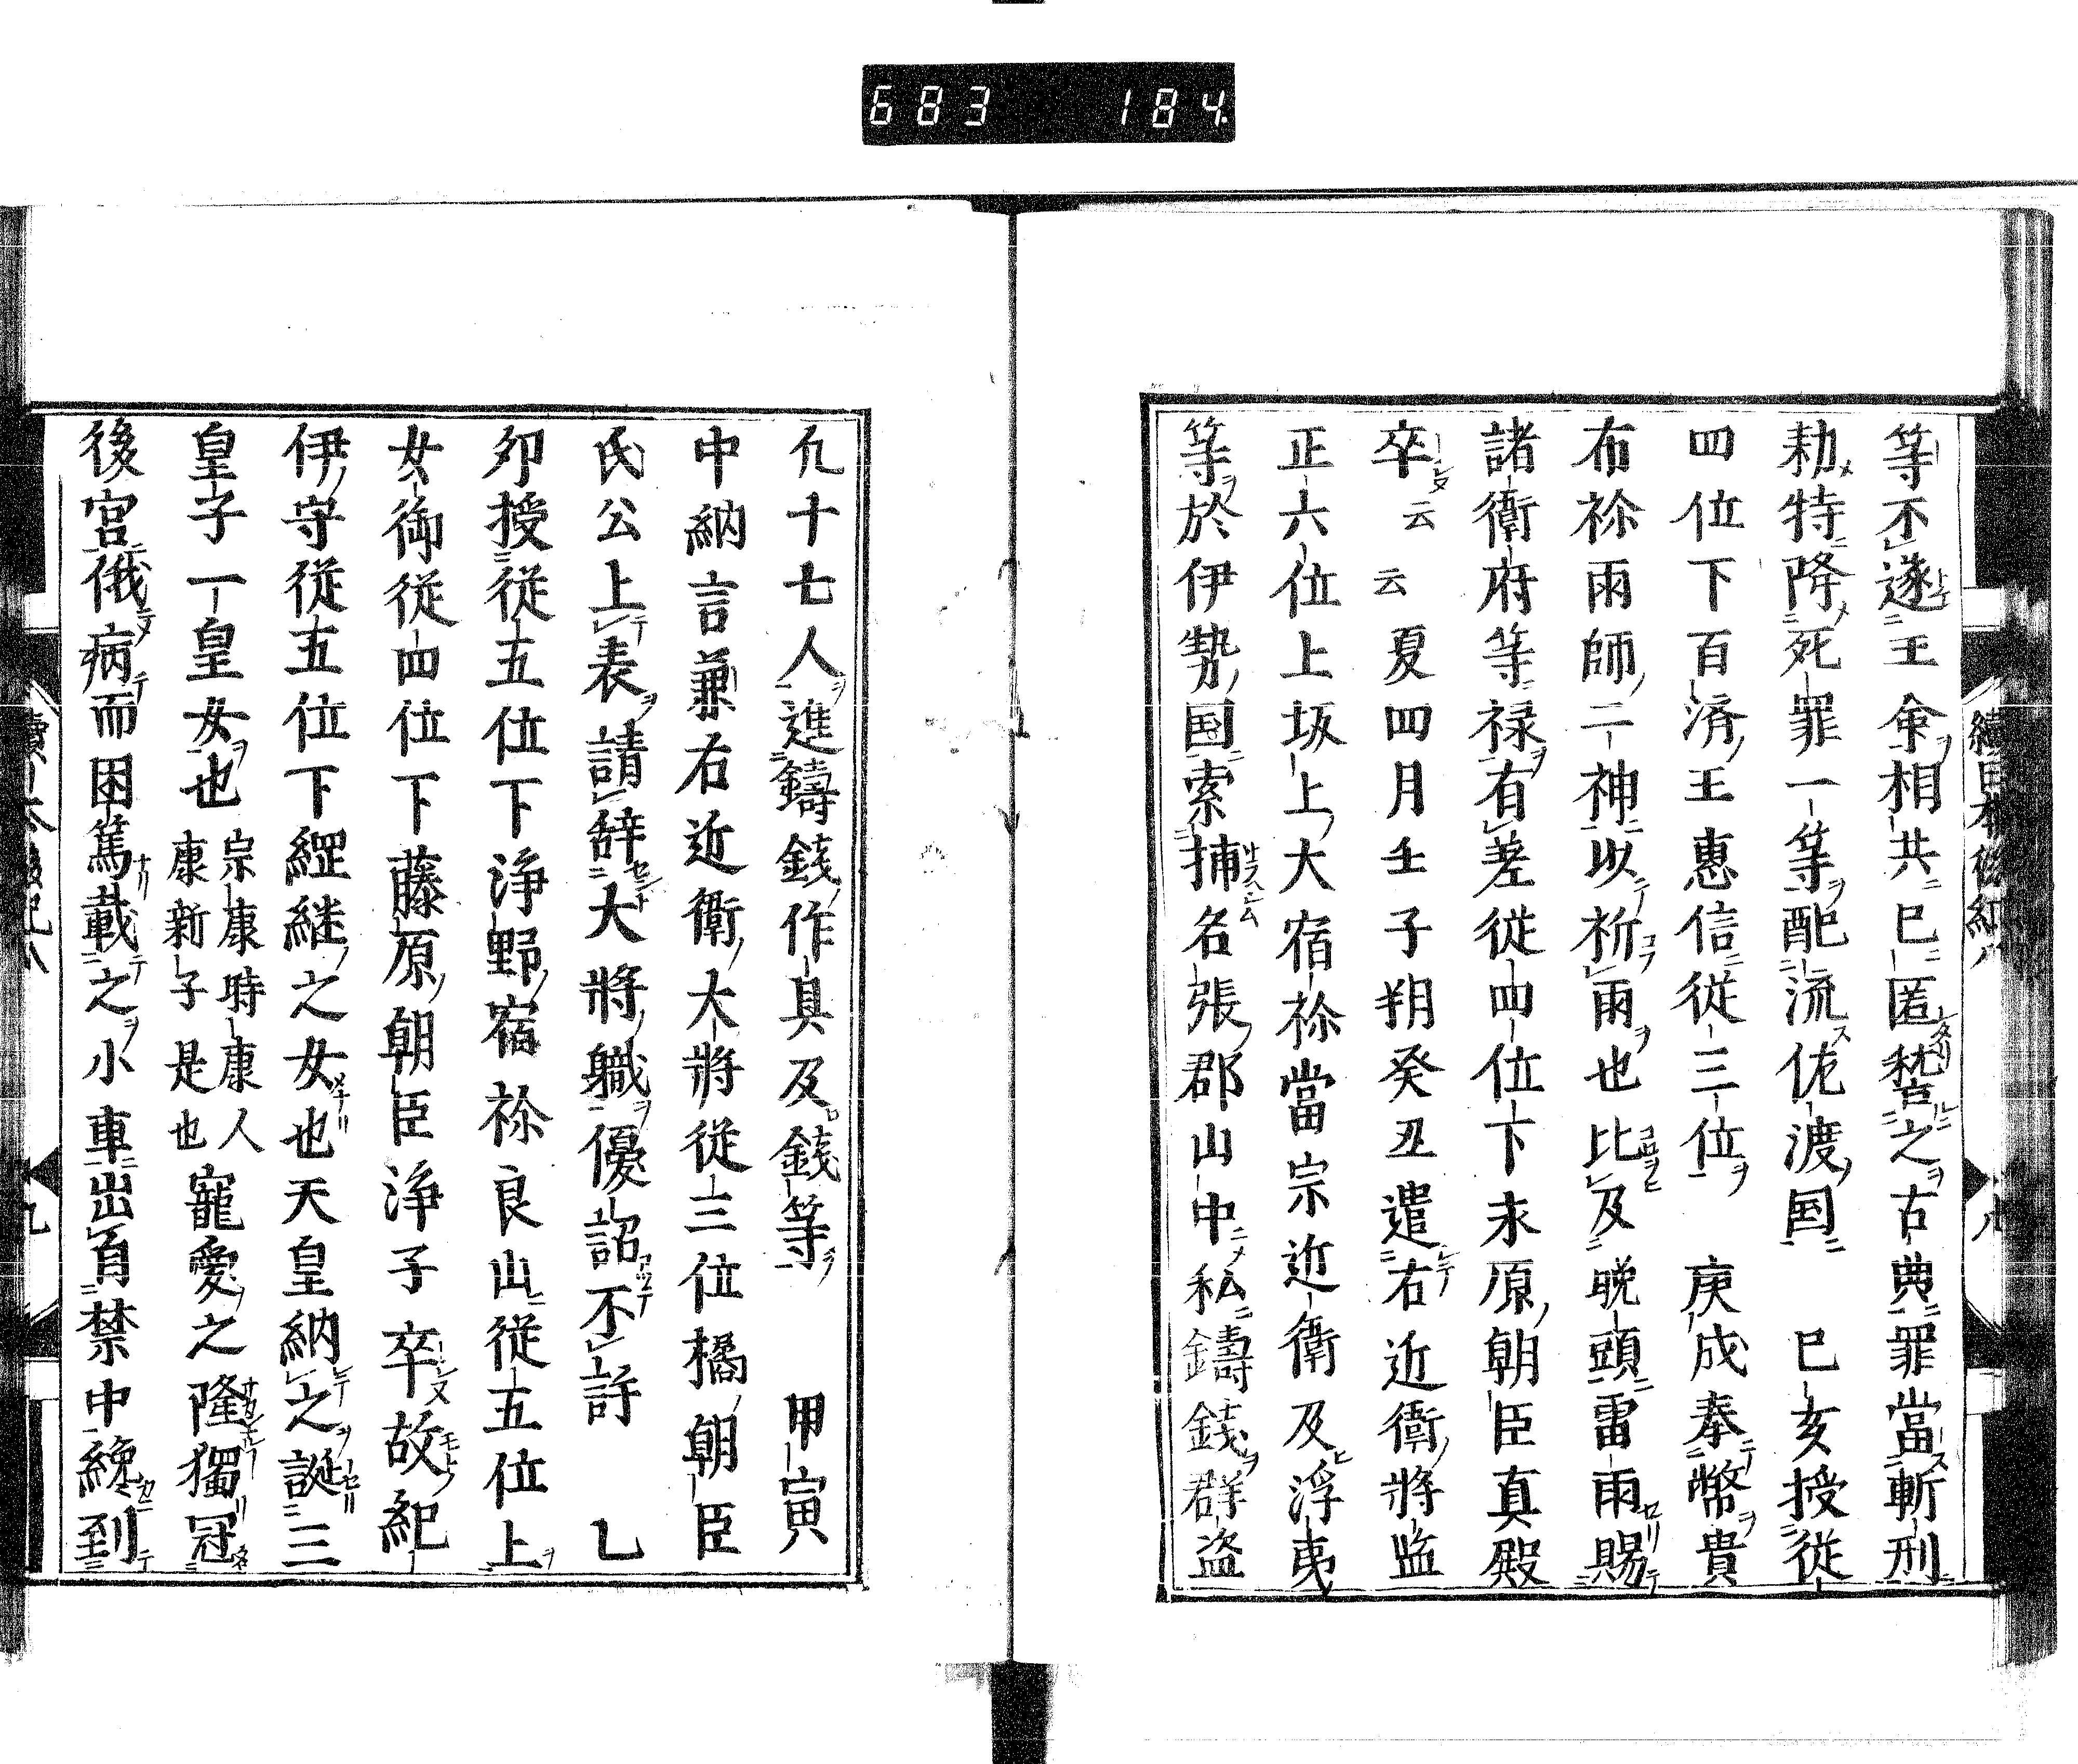 683 184
續日本後紀八
八
等不遂王命相共巳匿愁之古典罪當斬刑
勅特降死罪一等配流佐渡国 巳亥授從
四位下百済王惠信從三位 庚戌奉幣貴
布祢雨師二神以祈雨也比及晩頭雷雨賜
諸衛府等禄有差從四位下永原朝臣真殿
卒云云夏四月壬子朔癸丑遣右近衛將監
正六位上坂上大宿祢當宗近衛及浮夷
等於伊勢国索捕名張郡山中私鑄錢群盗
九十七人進鑄錢作具及錢等 甲寅
中納言兼右近衛大將從三位橘朝臣
氏公上表請辞大將職優詔不許 乙
卯授從五位下浄野宿祢良山從五位上
女御從四位下藤原朝臣浄子卒故紀
伊守從五位下綱継之女也天皇納之誕三
皇子一皇女也
宗康時康人
康新子是也
寵愛之隆獨冠
後宮俄病而困篤載之小車出自禁中纔到
九